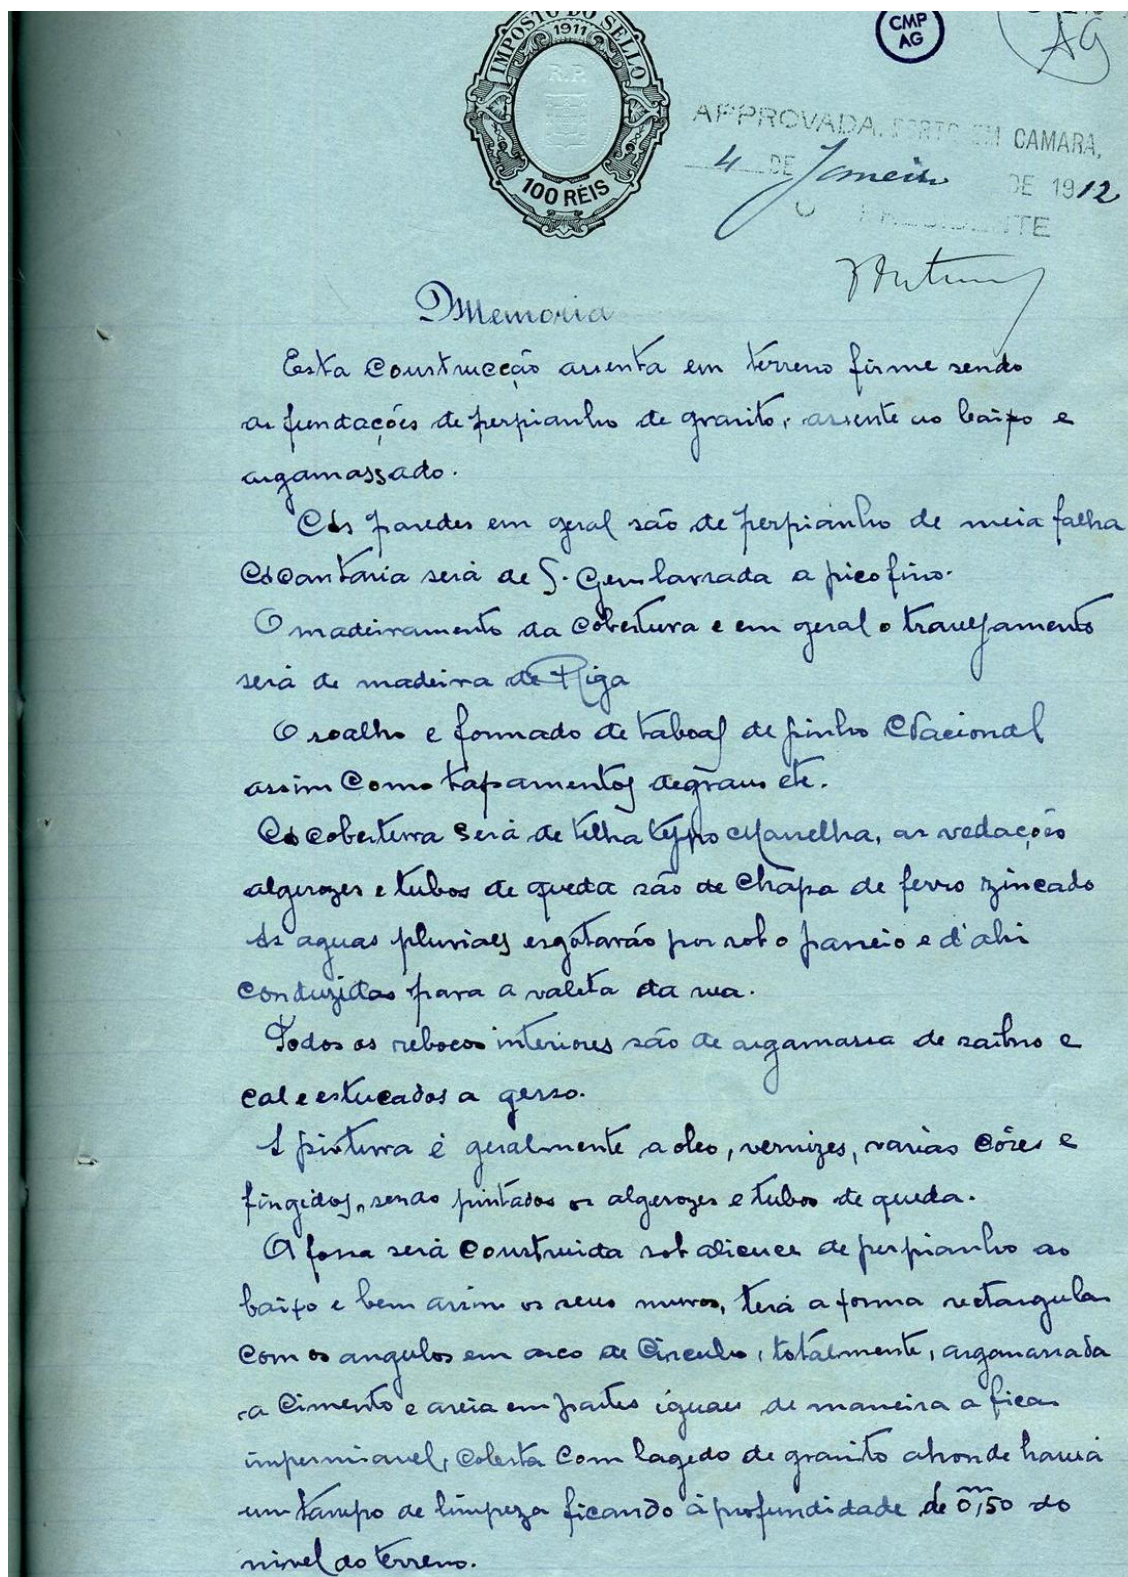 IMPOSTO DO SELLO
1911
R.P.
100 RÉIS
CMP
AG
AG
APPROVADA. PORTO EM CAMARA,
4 DE Janeiro DE 1912
O PRESIDENTE
Memoria
Esta Construcção assenta em terreno firme sendo
as fundações de perpianho de granito, assente ao baixo e
argamassado.
As paredes em geral são de perpianho de meia falha
A Cantaria será de S. Gens lavrada a pico fino.
O madeiramento da Cobertura e em geral o travejamento
será de madeira de Riga
O soalho e formado de taboas de pinho Nacional
assim Como tapamentos degraus etc.
A cobertura será de telha typo Marselha, as vedações
algerozes e tubos de queda são de Chapa de ferro zincado
As aguas pluviaes esgotarão por sob o passeio e d'ahi
Conduzidas para a valeta da rua.
Todos os rebocos interiores são de argamassa de saibro e
Cal e estucados a gesso.
A pintura é geralmente a oleo, vernizes, varias Côres e
fingidos, sendo pintados os algerozes e tubos de queda.
A fossa será Construida sob alicerce de perpianho ao
baixo e bem assim os seus muros, terá a forma rectangular
Com os angulos em arco de Circulo, totalmente, argamassada
a Cimento e areia em partes iguaes de maneira a ficar
impermiavel, Coberta Com lagedo de granito ahonde haverá
um tampo de limpeza ficando á profundidade de 0,50 do
nivel do terreno.